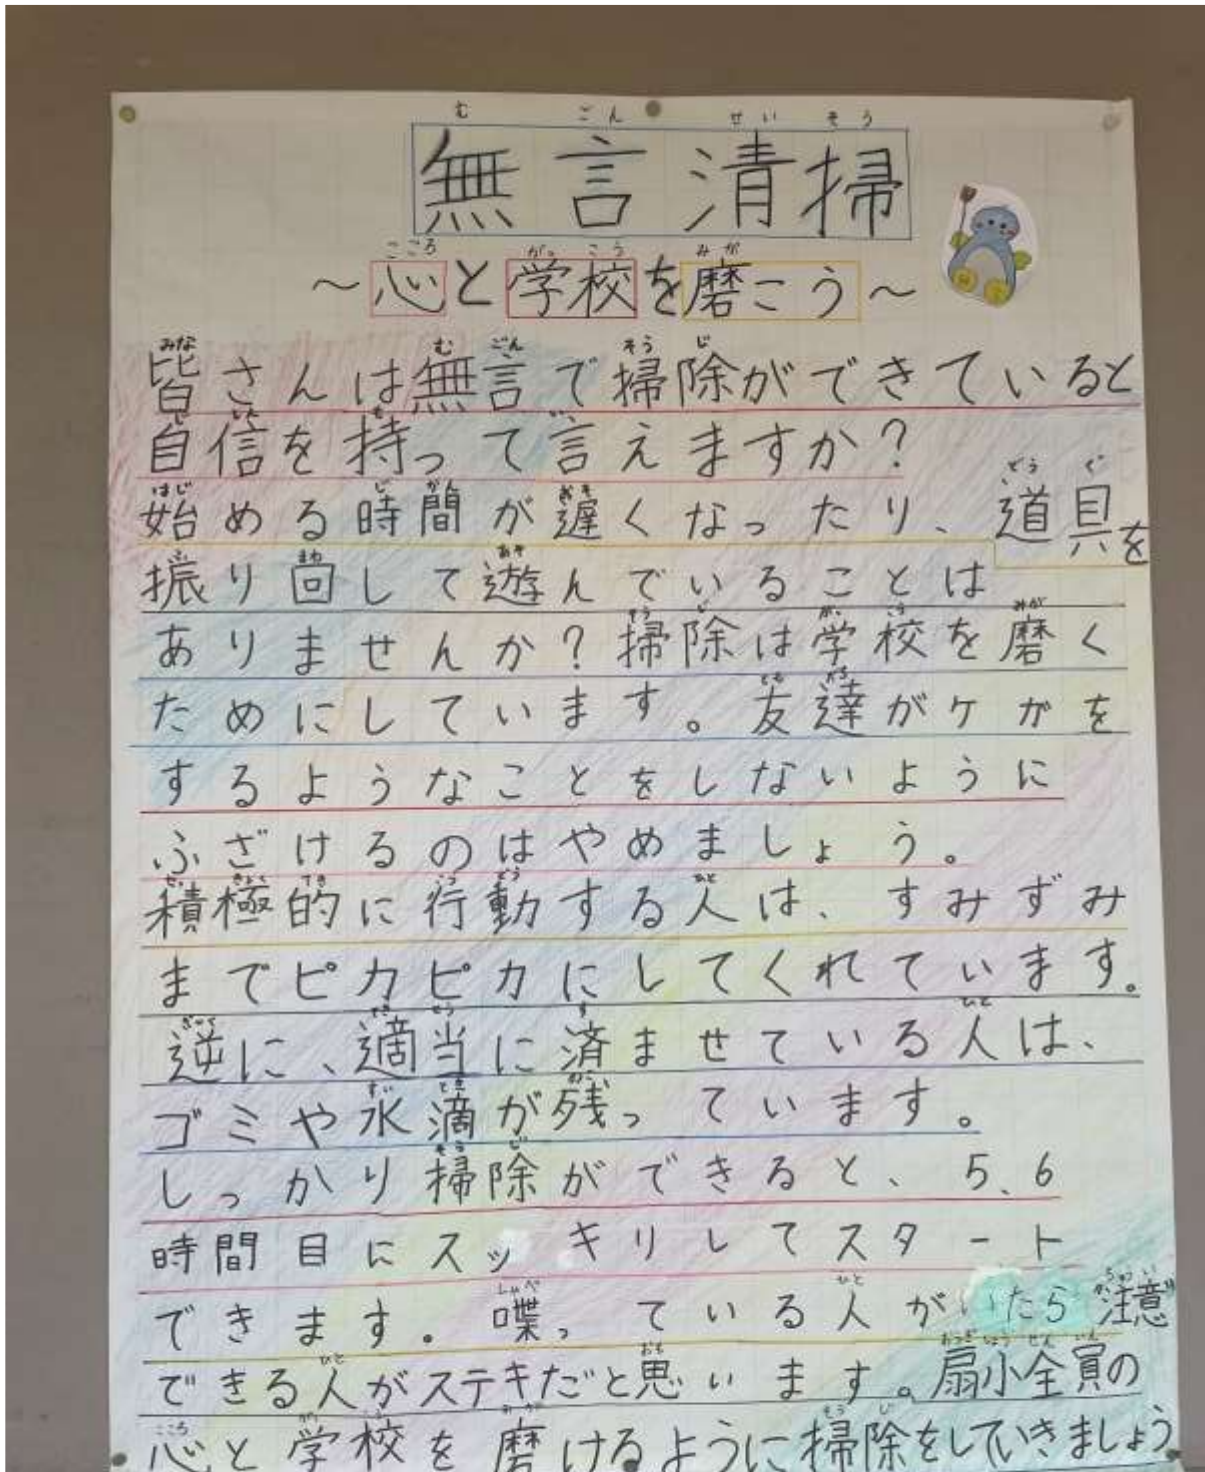 無言清掃
～心と学校を磨こう～
皆さんは無言で掃除ができていると
自信を持って言えますか？
始める時間が遅くなったり、道具を
振り回して遊んでいることは
ありませんか？掃除は学校を磨く
ためにしています。友達がケガを
するようなことをしないように
ふざけるのはやめましょう。
積極的に行動する人は、すみずみ
までピカピカにしてくれています。
逆に、適当に済ませている人は、
ゴミや水滴が残っています。
しっかり掃除ができると、5、6
時間目にスッキリしてスタート
できます。喋っている人がいたら注意
できる人がステキだと思います。扇小全員の
心と学校を磨けるように掃除をしていきましょう